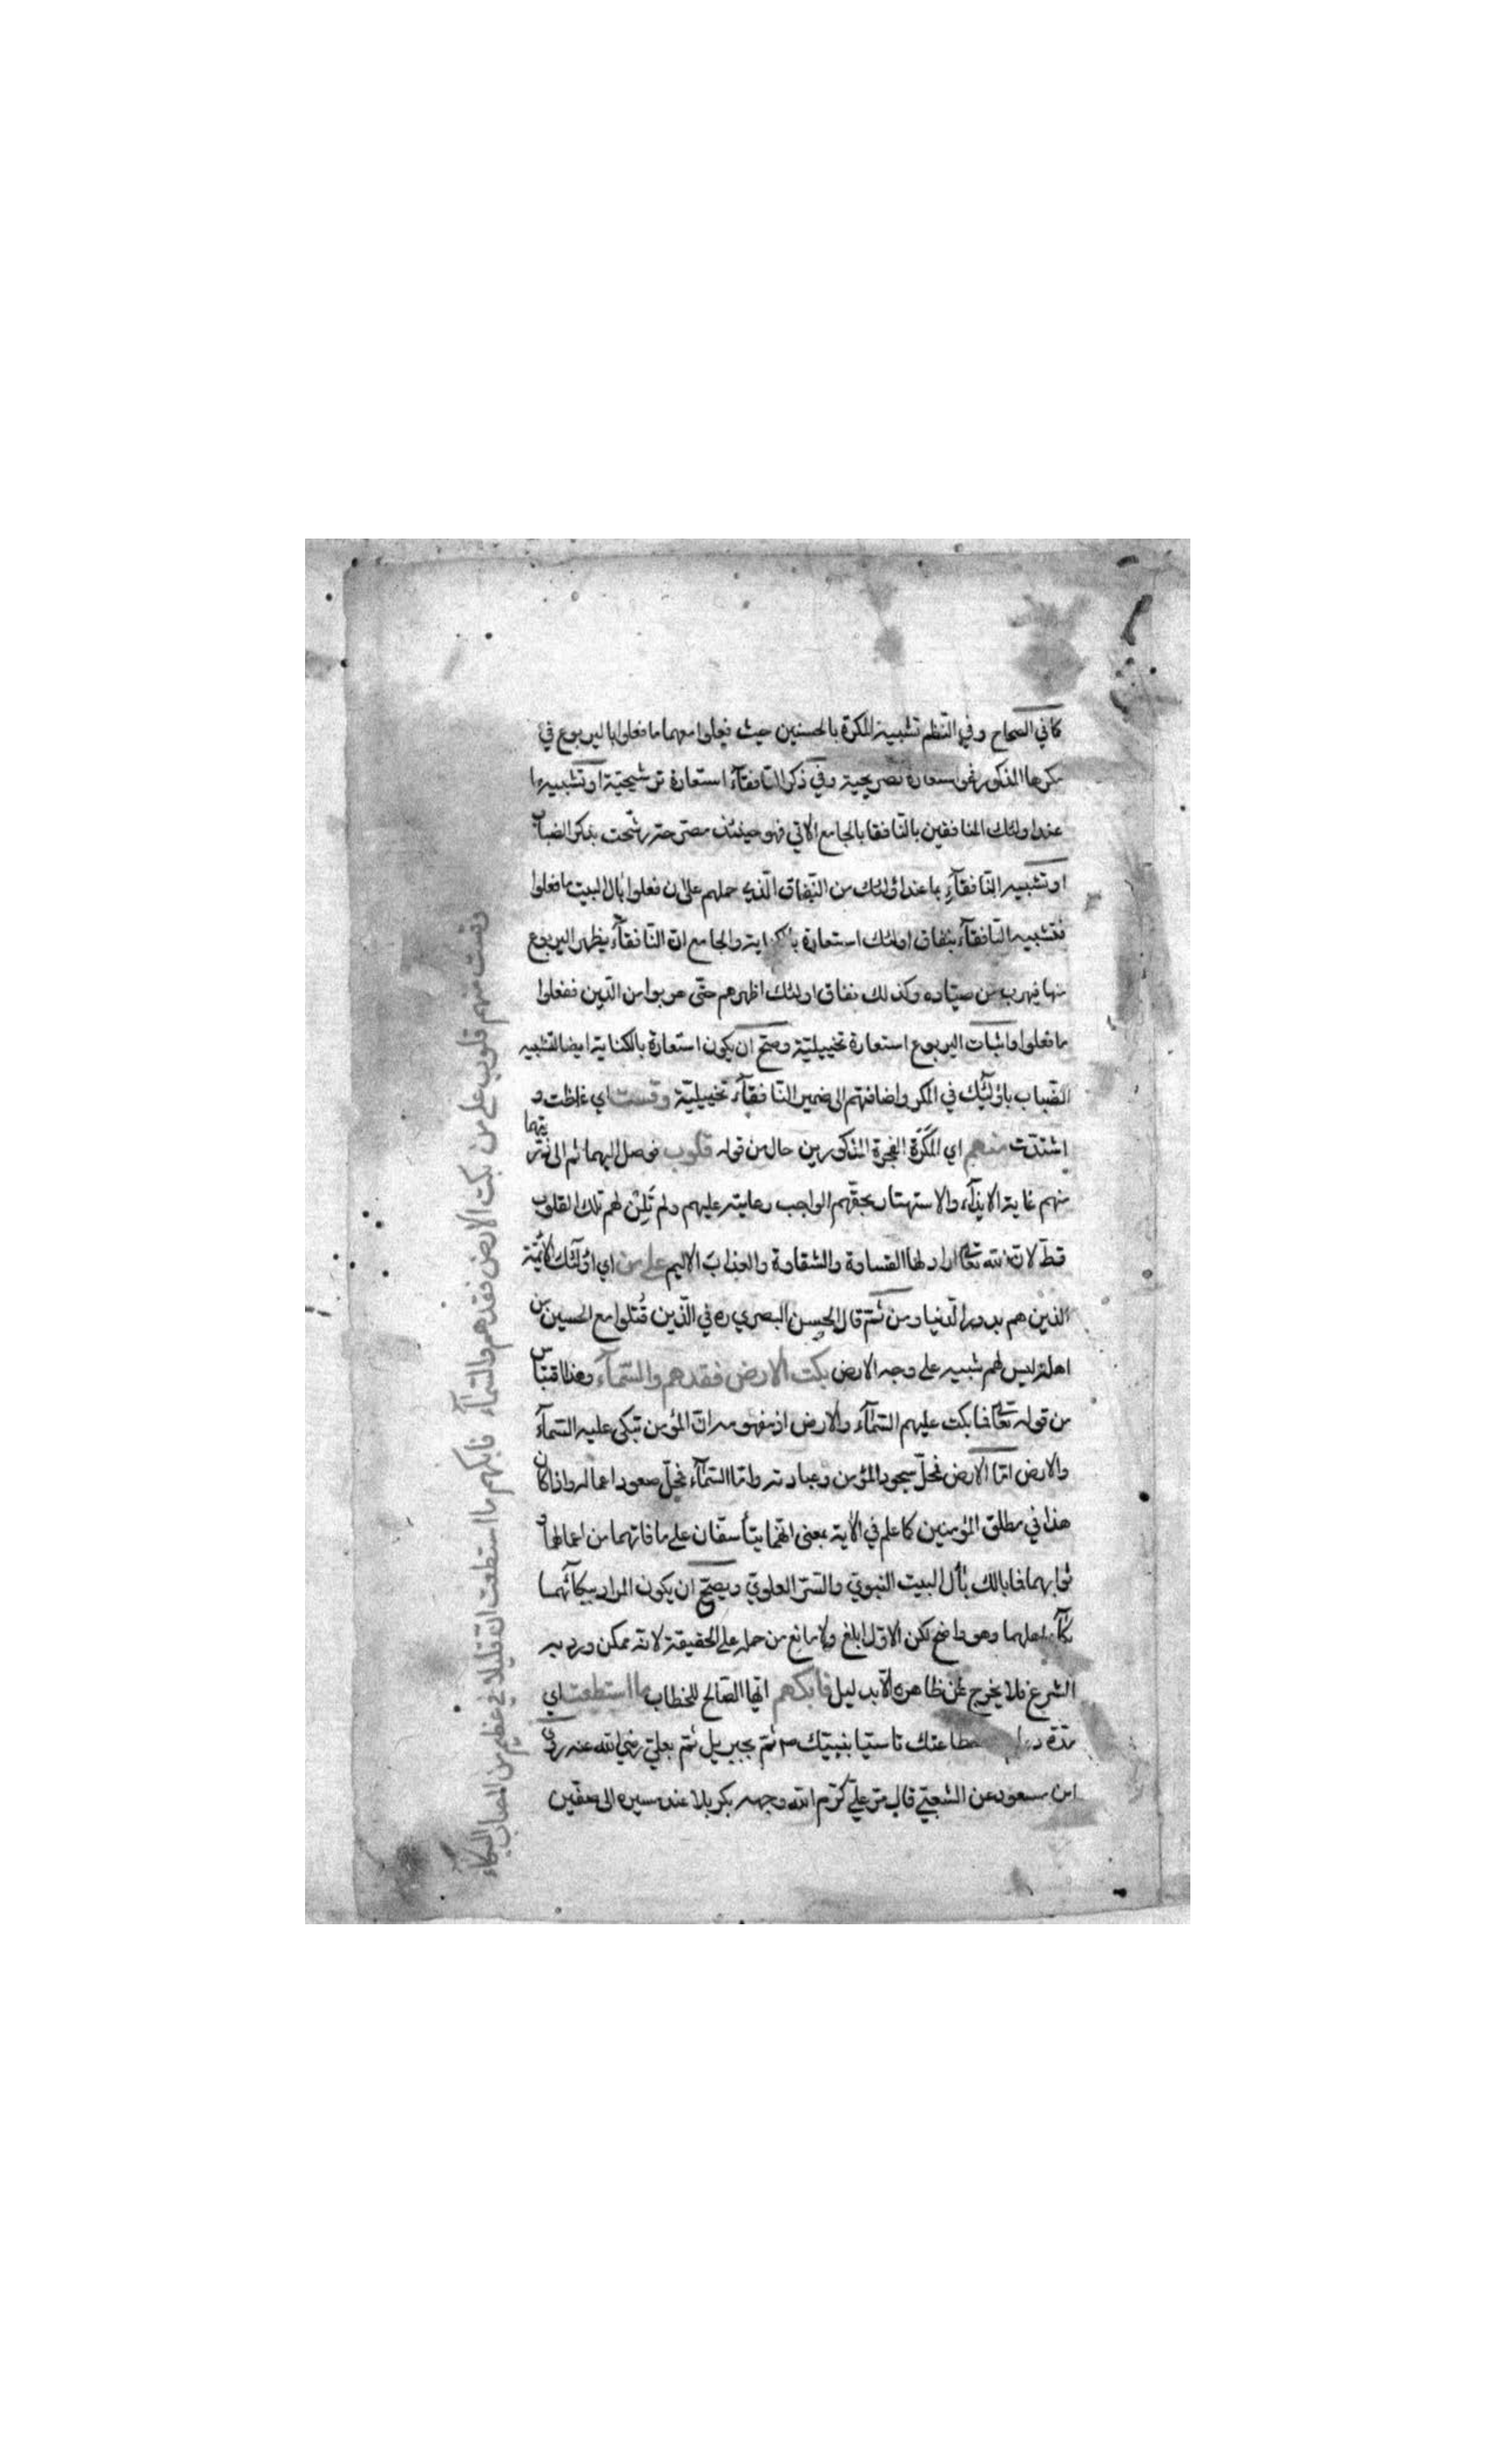 كما في الصحاح وفي النظم تشبيه المكرة بالحسنين حيث فعلوا معهما ما فعلوا باليربوع في
مكرها المذكور فهي استعارة تصريحية وفي ذكر النافقآء استعارة ترشيحية او تشبيه ما
عند اولئك المنافقين بالنافقا بالجامع الاتي فهو حينئذ مصرحة رشحت بذكر الضباب
او تشبيه النافقآء بما عند اولئك من النفاق الذي حملهم على ان فعلوا بال البيت ما فعلوا
فتشبيه النافقآء بنفاق اولئك استعارة بالكناية والجامع ان النافقآء يظهر اليربوع
منها فيهرب من صياده وكذلك نفاق اولئك اظهرهم حتى هربوا من الدين ففعلوا
ما فعلوا واثبات اليربوع استعارة تخييلية وصح ان يكون استعارة بالكناية ايضا لتشبيه
الضباب باولئك في المكر واضافتهم الى ضمير النافقآء تخييلية وقست اي غلظت و
اشتدت منهم اي المكرة الفجرة المذكورين حال من قوله قلوب فوصل اليهما ثم الى
منهم غاية الايذآء والاستهتار بحقهم الواجب رعايته عليهم ولم تلن لهم تلك القلوب
قط لان الله تعالى اراد لها القساوة والشقاوة والعذاب الاليم على من اي اولئك الائمة
الذين هم بدور الدنيا ومن ثم قال الحسن البصري ره في الذين قُتلوا مع الحسين من
اهله ليس لهم شبيه على وجه الارض بكت الارض فقدهم والسمآء وهذا اقتباس
من قوله تعالى فما بكت عليهم السمآء والارض اذ مفهومه ان المؤمن تبكي عليه السمآء
والارض اما الارض فمحل سجود المؤمن وعبادته واما السمآء فمحل صعود اعماله واذا كان
هذا في مطلق المؤمنين كما علم في الآية بمعنى انهما يتأسفان على ما فاتهما من اعمالها و
ثوابهما فما بالك بأل البيت النبوي والسر العلوي ويصح ان يكون المراد ببكآئهما
بكآء اهلهما وهو واضح لكن الاول ابلغ ولا مانع من حمله على الحقيقة لانه ممكن ورد به
الشرع فلا يخرج عن ظاهره الا بدليل فابكهم ايها الصالح للخطاب ما استطعت اي
مدة استطاعتك تاسيا بنبيك ثم بجبريل ثم بعلي رضي الله عنه روى
ابن مسعود عن الشعبي قال مر علي كرم الله وجهه بكربلا عند مسيره الى صفين
وقست منهم قلوب على من بكت الارض فقدهم والسمآء فابكهم ما استطعت ان قليلا في عظيم من المصاب البكاء